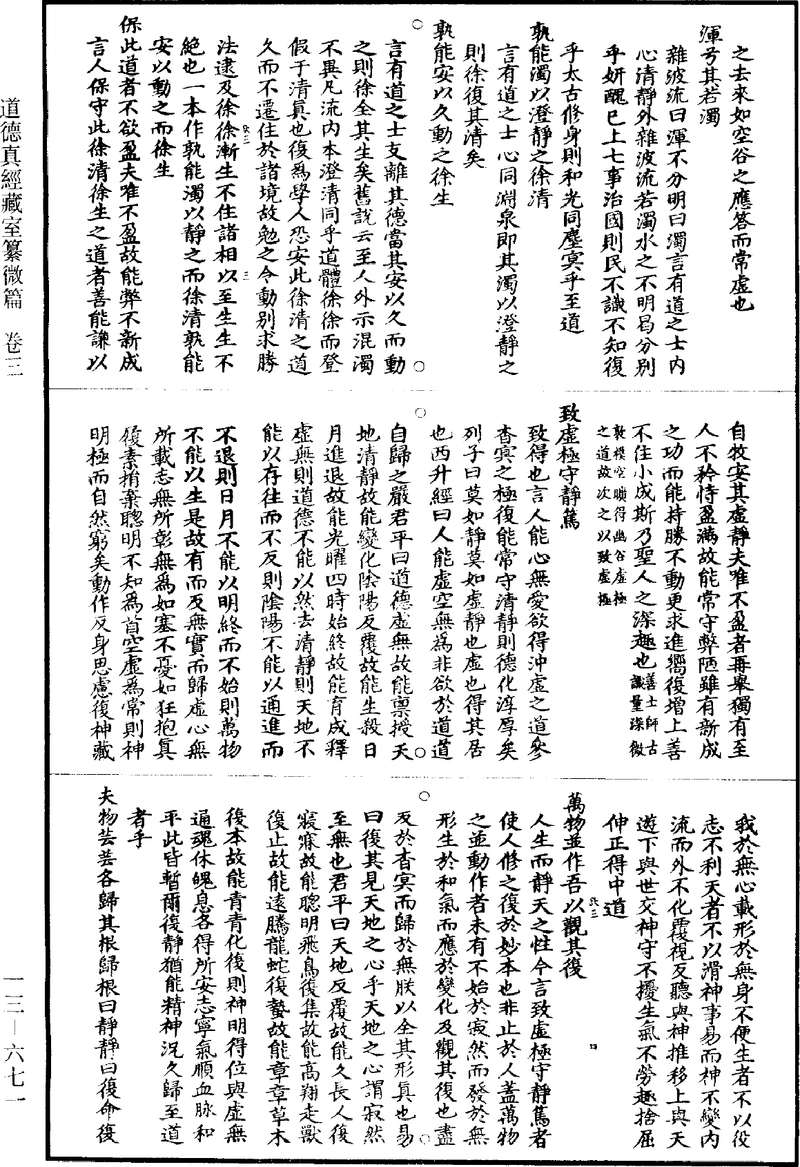 之去來如空谷之應答而常虛也
渾兮其若濁
雜波流曰渾不分明曰濁言有道之士內
心清靜外雜波流若濁水之不明曷分別
乎妍醜已上七事治國則民不識不知復
乎太古修身則和光同塵冥乎至道
孰能濁以澄靜之徐清
言有道之士心同淵泉即其濁以澄靜之
則徐復其清矣
孰能安以久動之徐生
言有道之士支離其德當其安以久而動
之則徐全其生矣舊說云至人外示混濁
不異凡流內本澄清同乎道體徐徐而登
假于清真也復為學人恐安此徐清之道
久而不遷住於諸境故勉之令動別求勝
法逮及徐徐漸生不住諸相以至生生不
絕也一本作孰能濁以靜之而徐清孰能
安以動之而徐生
保此道者不欲盈夫唯不盈故能弊不新成
言人保守此徐清徐生之道者善能謙以
自牧安其虛靜夫唯不盈者再舉獨有至
人不矜恃盈滿故能常守弊陋雖有新成
之功而能持勝不動更求進嚮復增上善
不住小成斯乃聖人之深趣也善士師古識量深微
敦樸空曠得幽谷虛極之道故次之以致虛極
致虛極守靜篤
致得也言人能心無愛欲得沖虛之道參
杳冥之極復能常守清靜則德化淳厚矣
列子曰莫如靜莫如虛靜也虛也得其居
也西升經曰人能虛空無為非欲於道道
自歸之嚴君平曰道德虛無故能稟授天
地清靜故能變化陰陽反覆故能生殺日
月進退故能光曜四時始終故能育成釋
虛無則道德不能以然去清靜則天地不
能以存往而不反則陰陽不能以通進而
不退則日月不能以明終而不始則萬物
不能以生是故有而反無實而歸虛心無
所載志無所彰無為如塞不憂如狂抱真
履素捐棄聰明不知為首空虛為常則神
明極而自然窮矣動作反身思慮復神藏
我於無心載形於無身不便生者不以役
志不利天者不以滑神事易而神不變內
流而外不化覆視反聽與神推移上與天
遊下與世交神守不擾生氣不勞趣捨屈
伸正得中道
萬物並作吾以觀其復
人生而靜天之性今言致虛極守靜篤者
使人修之復於妙本也非止於人蓋萬物
之並動作者未有不始於寂然而發於無
形生於和氣而應於變化及觀其復也盡
反於杳冥而歸於無朕以全其形真也易
曰復其見天地之心乎天地之心謂寂然
至無也君平曰天地反覆故能久長人復
寢寐故能聰明飛鳥復集故能高翔走獸
復止故能遠騰龍蛇復蟄故能章章草木
復本故能青青化復則神明得位與虛無
通魂休魄息各得所安志寧氣順血脉和
平此皆暫爾復靜猶能精神況久歸至道
者乎
夫物芸芸各歸其根歸根曰靜靜曰復命復
道德真經藏室纂微篇 卷三
一三—六七一